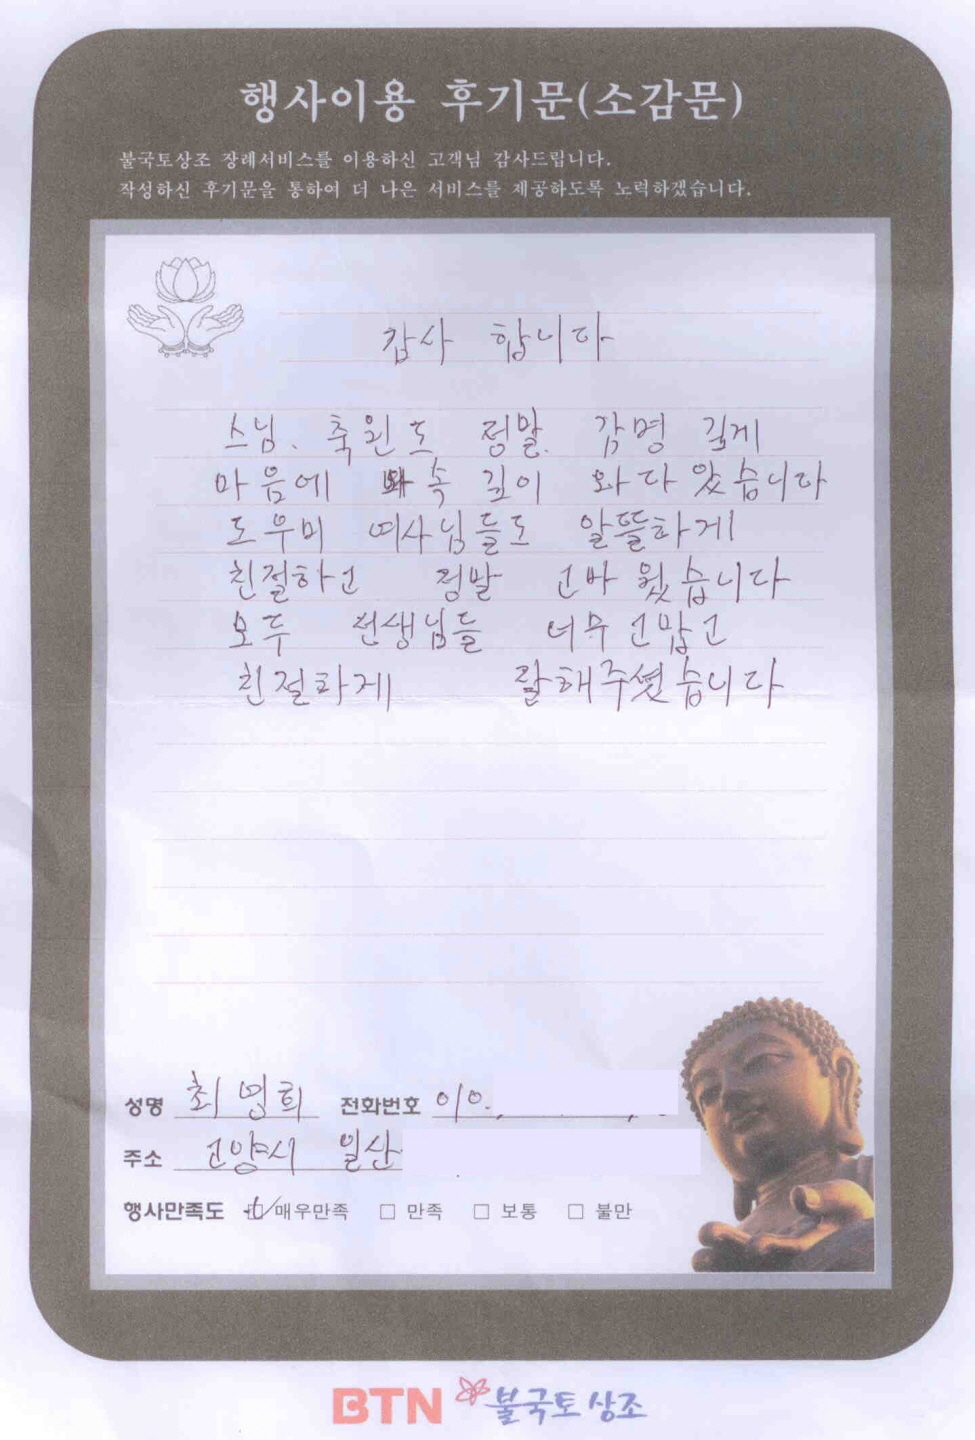 행사이용 후기문(소감문)
불국토상조 장례서비스를 이용하신 고객님 감사드립니다.
작성하신 후기문을 통하여 더 나은 서비스를 제공하도록 노력하겠습니다.
감사 합니다
스님. 축원도 정말. 감명 깊게
마음에 속 깊이 와다 았습니다
도우미 여사님들도 알뜰하게
친절하고 정말 고바 웠습니다
모두 선생님들 너무 고맙고
친절하게 잘해주셨습니다
성명 최영희 전화번호 010.
주소 고양시 일산
행사만족도 매우만족 만족 보통 불만
BTN 불국토상조